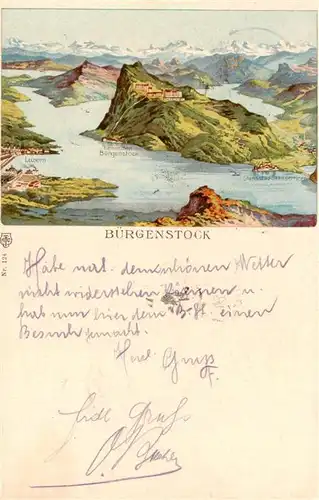 Luzern
Bürgenstock
BÜRGENSTOCK
Nr. 124
Habe mal dem schönen Wetter
nicht widerstehen können u.
hab nun hier dem B.st. einen
Besuch gemacht.
Herzl. Gruss
Gruss